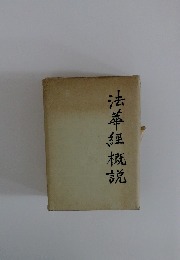 法華經概説